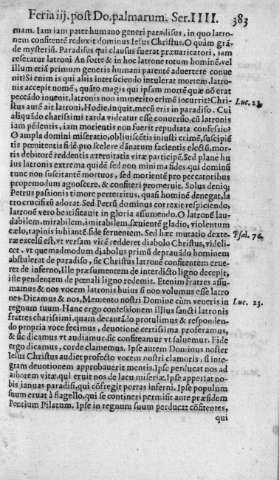 Feria iij. post Do. palmarum. Ser. IIII. 383
enam. Iam iam patet humano generi paradisus, in quo latro-
nem consitentē reduxit dominus Iesus Christus. O quàm grā-
de mysteriū. Paradisus qui clausus fuerat præuaricatori, iam
reseratur latroni An forte & in hoc latrone totum hominē, vel
illum etiā primum generis humani parentē aduertere conue
nit? Si enim is qui alijs intercludit mortem latro-
nis accepit nomē, quāto magis qui ipsam mortē
cēdo inuenit, latronis non immerito crimē incurrit?
Luc. 23.
ait latroni: Hodie inquit, mecū eris in paradiso. Cui
aliqui ido charissimi tarda videatur esse conuersio, cū latronis
iam pēdentis, iam morientis non fuerit repudiata confessio?
O ampla domini miseratio, oblitus sceleris iniusti
poenitentis fide pro scelere damnatum
ris debitorē reddentis æternitatis vitæ participē. Sed plane hu
ius latronis extrema quidē sed non minima fides, qui dominū
tunc non suscitantē mortuos, sed morientē pro peccatoribus
propemodum agnoscere, & confiteri promeruit. Solus deniq;
Petrus passionis timore perterritus, quasi hominē denegat, la
tro crucifixū adorat. Sed Petrū dominus correxit respiciendo,
latronē vero beatificauit in gloria assumendo. O latronē lau-
dabilem, mirabilem, imitabilem, sæuientē gladio, violentum
cælo, rapinis inhiantē, fide feruentem. Sed hæc mutatio dextræ
Psal. 76.
ræ excelsi est, vt versam vicē redderet diabolo Christus, videli
cet, vt quemadmodum diabolus primū deprauādo hominem
abstulerat de paradiso, sic & Christus latronē consitentem erue
ret de inferno, Ille præsumentem de interdicto ligno decepit,
iste pendentem de penali ligno redemit. Etenim fratres assu-
mamus & nos vocem latronis huius si non volumus esse latro
nes Dicamus & nos, Memento nostri Domine cùm veneris in
Luc. 23.
regnum tuum Hanc ergo confessionem illius sancti latronis
fratres charissimi, quam decantādo protulimus, & responden-
do propria voce fecimus, deuotione certissima proferamus,
& sic dicamus vt audiamur, sic confiteamur vt saluemur. Fide
ergo dicamus, corde clamemus. Ipse autem Dominus noster
Iesus Christus audiet profecto vocem nostri clamoris, si inte-
gram deuotionem approbauerit mentis. Ipse perducat nos ad
arborem vitæ, qui eruit nos de lacu miseriæ. Ipse aperiat no-
bis ianuas paradisi, qui cōfregit portas inferni. Ipse populum
suum eruat à flagello, qui se contineri permisit ante præsidem
Pontium Pilatum. Ipse in regnum suum perducat cōfitentes,
qui